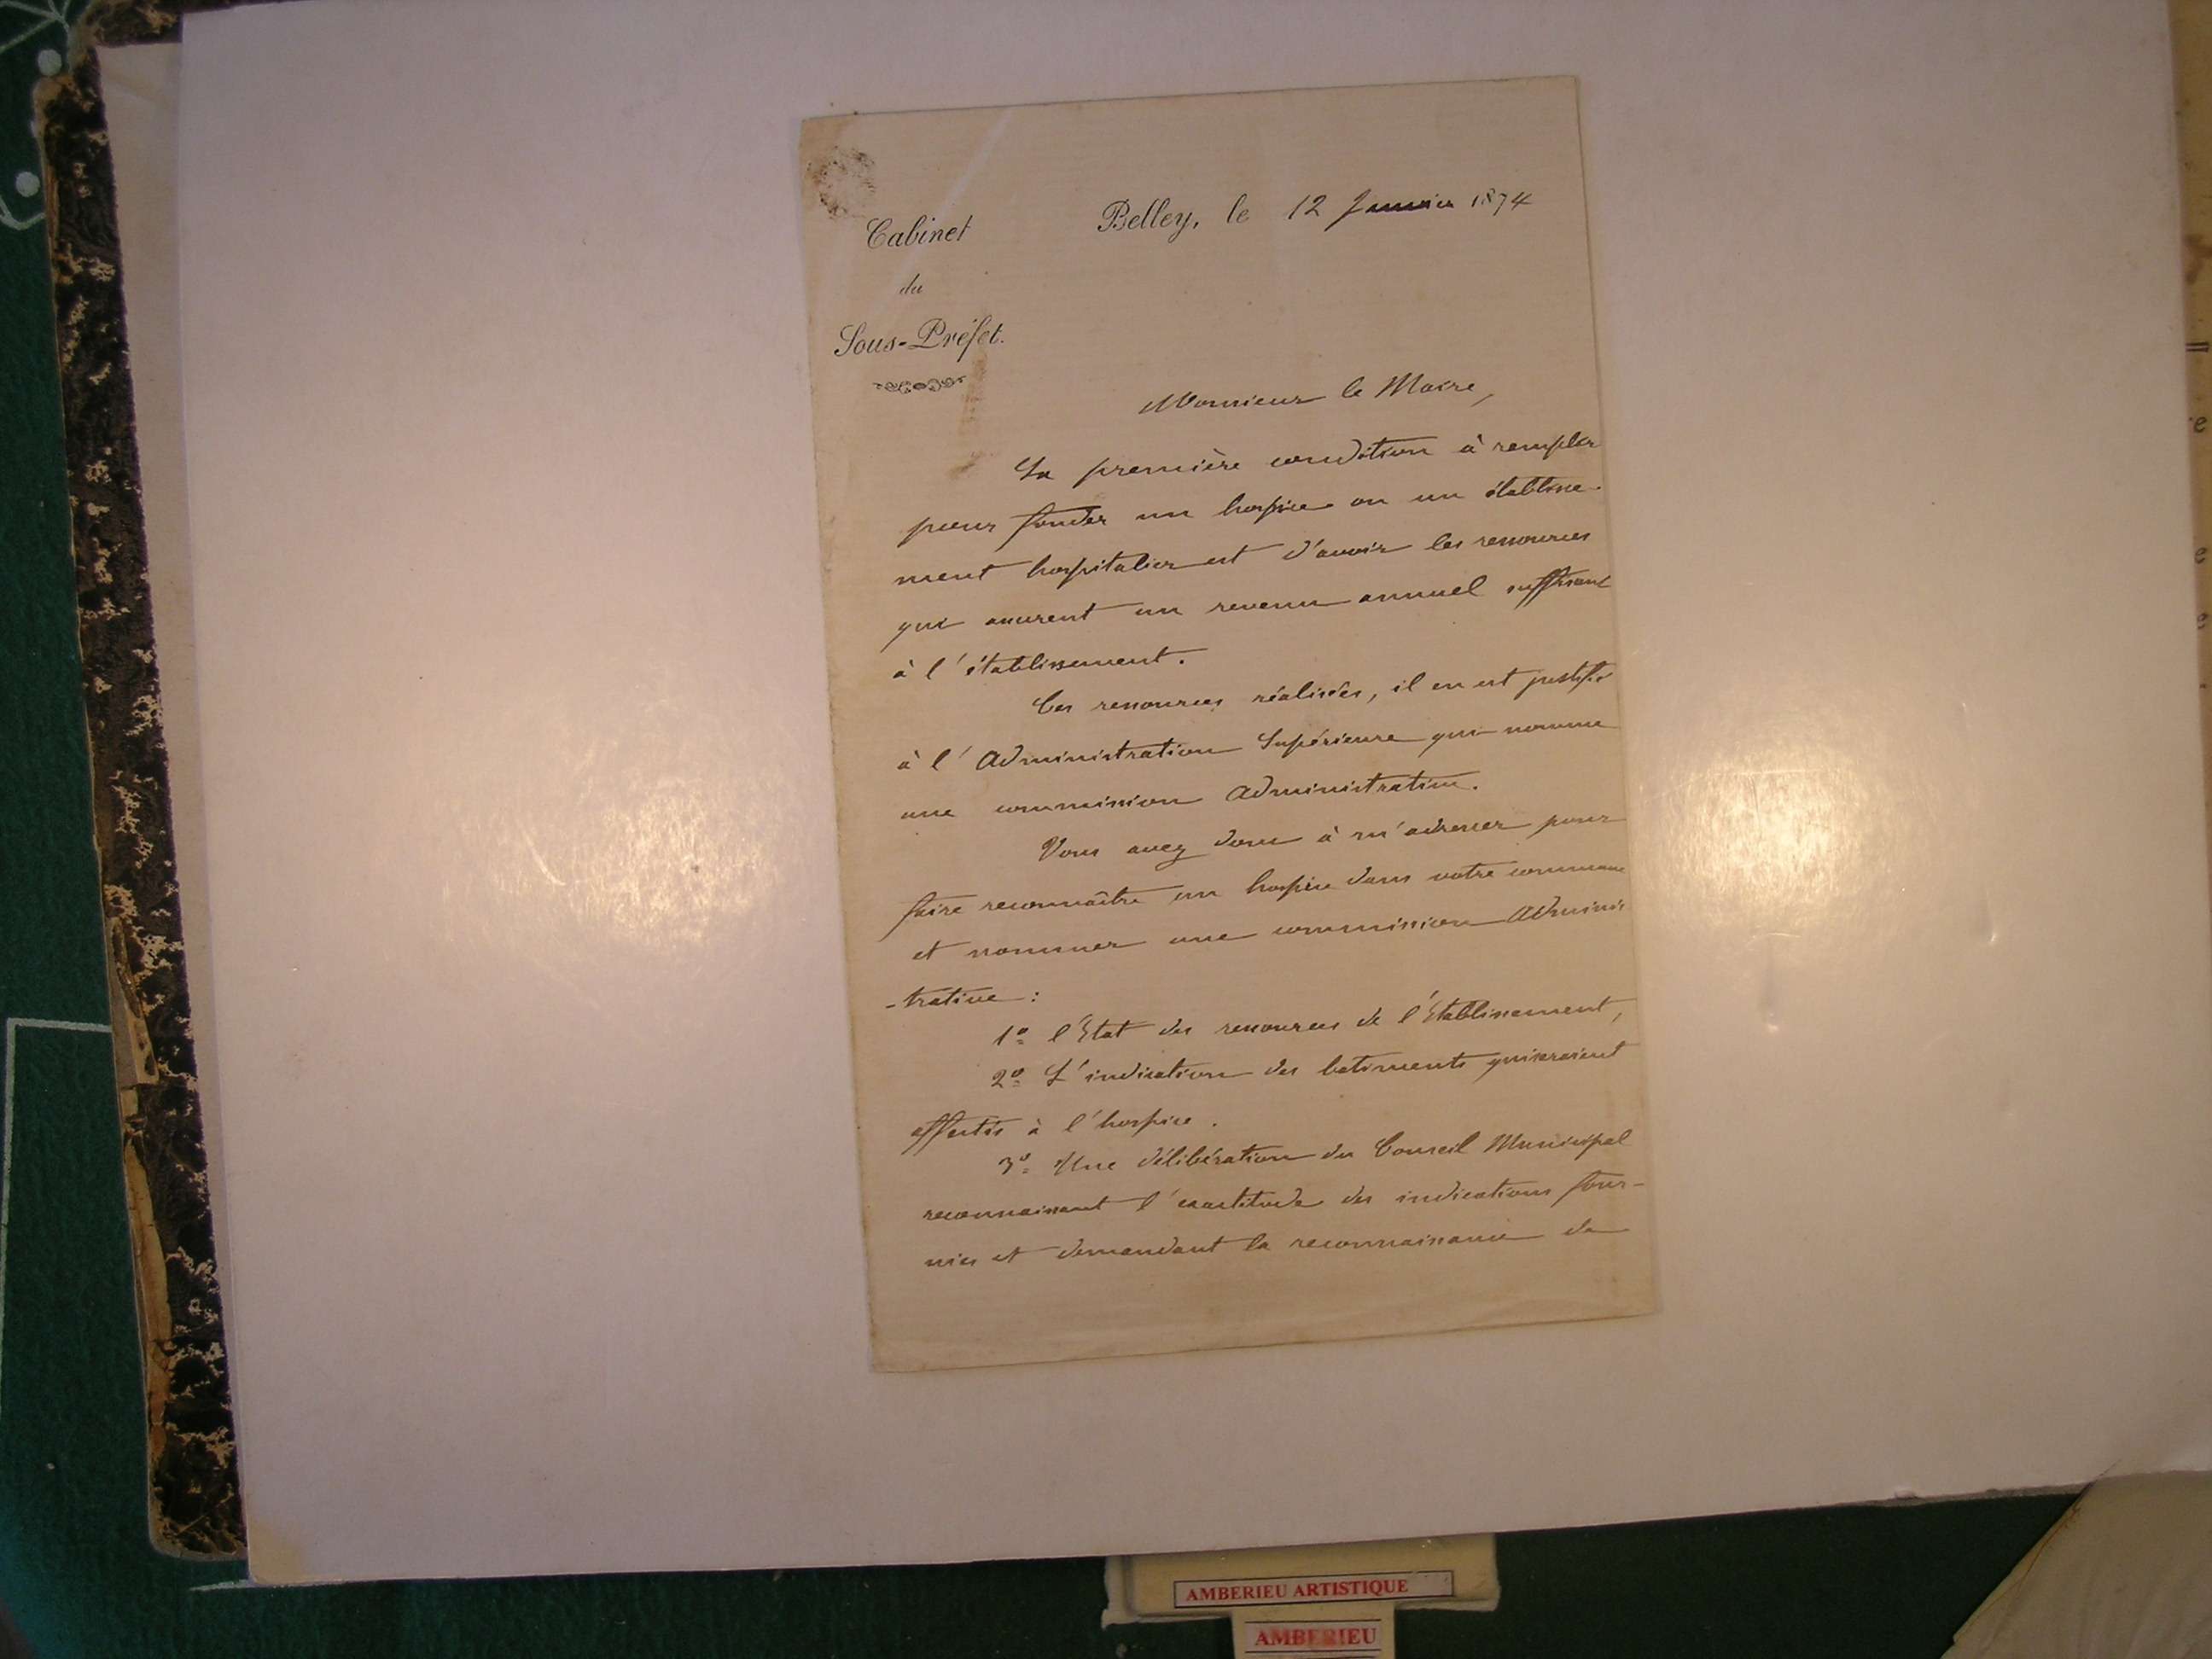 Cabinet
du
Sous-Préfet.
Belley, le 12 Janvier 1874
Monsieur le Maire,
La première condition à remplir
pour fonder un hospice ou un établisse-
ment hospitalier est d'avoir les ressources
qui assurent un revenu annuel suffisant
à l'établissement.
Ces ressources réalisées, il en est justifié
à l'Administration Supérieure qui nomme
une commission Administrative.
Vous avez donc à m'adresser pour
faire reconnaître un hospice dans votre commune
et nommer une commission Adminis
-trative :
1º l'Etat des ressources de l'Etablissement,
2º L'indication des batiments qui seraient
affectés à l'hospice.
3º Une délibération du Conseil Municipal
reconnaissant l'exactitude des indications four-
nies et demandant la reconnaissance de
AMBERIEU ARTISTIQUE
AMBERIEU